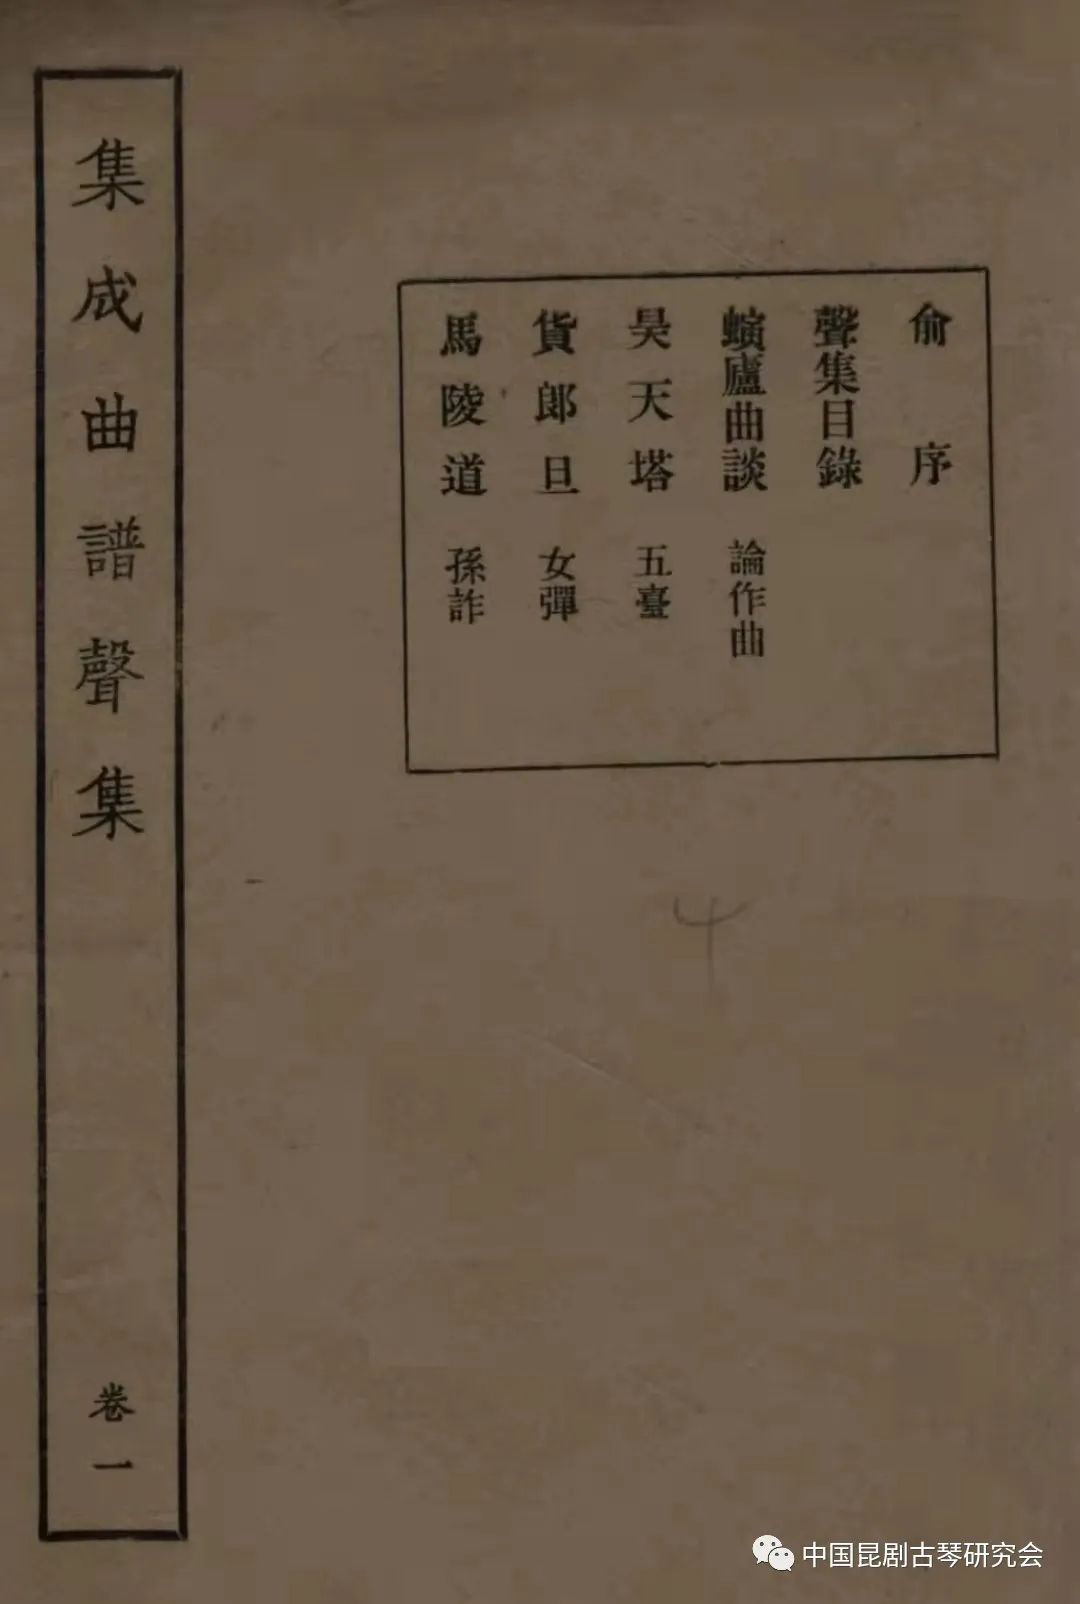 集成曲譜聲集
卷一
俞序
聲集目錄
螾廬曲談 論作曲
昊天塔 五臺
貨郎旦 女彈
馬陵道 孫詐
中国昆剧古琴研究会